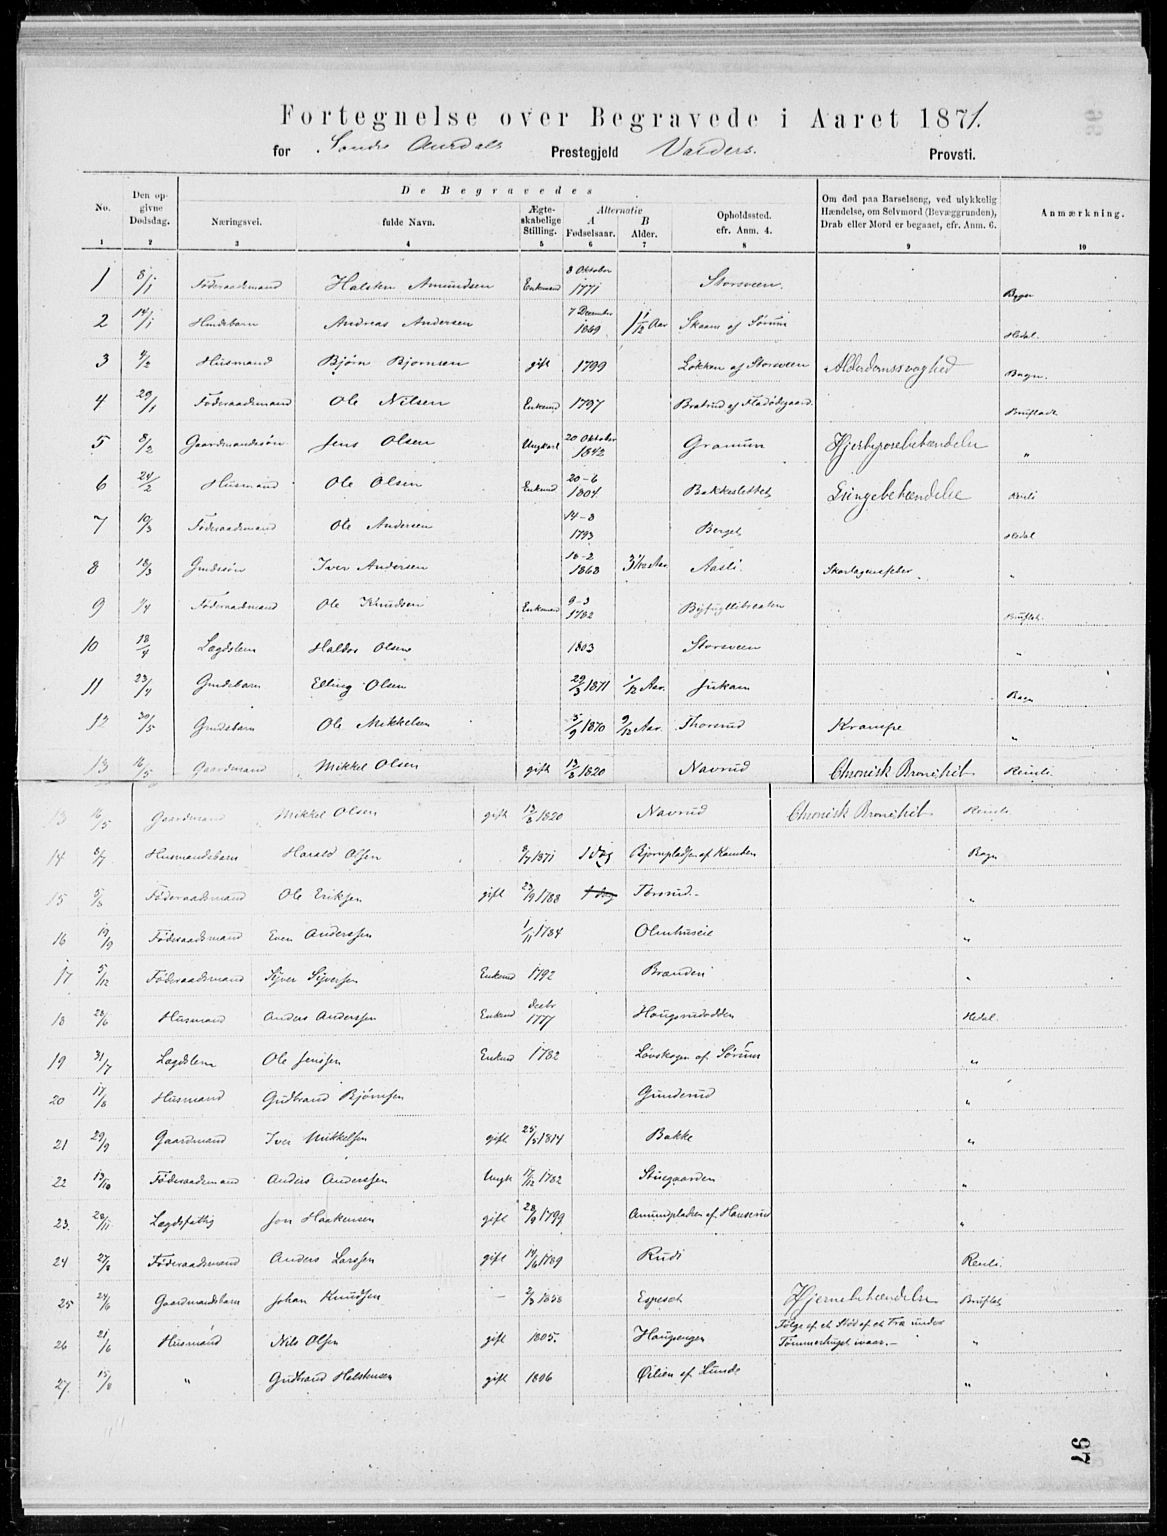 Fortegnelse over Begravede i Aaret 1871.
for Søndre Aurdals Prestegjeld Valders. Provsti.
De Begravedes
No. Den opgivne Dødsdag. Næringsvei. fulde Navn. Ægteskabelige Stilling. Alternativ A Fødselsaar. B Alder. Opholdssted. cfr. Anm. 4. Om død paa Barselseng, ved ulykkelig Hændelse, om Selvmord (Bevæggrunden), Drab eller Mord er begaaet, cfr. Anm. 6. Anmærkning.
1 2 3 4 5 6 7 8 9 10
1 8/1 Føderaadsmand Halsten Amundsen Enkemand 8 Oktober 1771 Storsveen. Bagn
2 14/1 Andreas Andersen 7 December 1869 1 1/12 Aar Skaam af Sørum Hedal.
3 4/2 Husmand Bjørn Bjørnsen gift 1799 Løkken af Storsveen Alderdomssvaghed Bagn.
4 29/1 Føderaadsmand Ole Nilsen Enkemd 1797 Bratrud af Fladødegaard Brufladt
5 8/2 Gaardmandssøn Jens Olsen Ungkarl 20 Oktober 1842 Granum „
6 24/2 Husmand Ole Olsen Enkemd 20-6 1804 Bakkeslettet Lungebetændelse Reinli
7 10/3 Føderaadsmand Ole Andersen 14-8 1793 Berget Hedal
8 18/3 Iver Andersen 18-2 1868 Aasli. Skarlagensfeber „
9 1/4 Føderaadmand Ole Knudsen Enkemand 9-3 1782 Bruflat.
10 18/4 Lægdslem Haldor Olsen 1803 Storsveen „
11 23/4 Elling Olsen 29/3 1871 1/12 Aar. Jukam Bagn
12 30/5 Ole Mikkelsen 5/9 1870 9/12 Aar. Thorsrud Krampe „
13 16/5 Gaardmand Mikkel Olsen gift 13/8 1820 Navrud Chronisk Bronchit Reinli.
13 16/5 Gaardmand Mikkel Olsen gift 13/8 1820 Navrud Chronisk Bronchit Reinli
14 8/7 Husmandsbarn Harald Olsen 8/7 1871 1 dag Bjørnpladsen af Bagn
15 5/8 Føderaadsmand Ole Eriksen gift 23/9 1788 1 dag Torsrud. „
16 19/9 Føderaadsmand Even Anderssen 1/11 1784 Olmhuseie „
17 5/12 Føderaadsmand Syver Syversen Enkemd 1792 Branden „
18 28/6 Husmand Anders Anderssen Enkemd decbr 1777 Haugsrudodden Hedal.
19 31/7 Lægdslem Ole Jenssen Enkemd 1782 Løvskogen af Sørum „
20 17/8 Husmand Gudbrand Bjørnsen Gunderud „
21 29/9 Gaardmand Iver Mikkelsen gift 25/5 1814 Bakke „
22 13/10 Føderaadsmand Anders Anderssen Ungk 17/12 1782 Stuegaarden „
23 28/11 Lægdsfattig Jon Haakensen gift 28/9 1799 Amundpladsen af Hanserud „
24 27/8 Føderaadsmand Anders Larssen gift 14/6 1789 Rudi Reinli.
25 24/6 Gaardmandsbarn Johan Knudsen – 2/3 1858 Espeset Hjernebetændelse Bruflat
26 21/6 Husmand Nils Olsen gift 1805. Haugengen Følge af et Stød af et Træ under Tømmerhugst ivaar.– „
27. 15/8 „ Gudbrand Halstensen gift 1806 Øilien af Lunde „
97